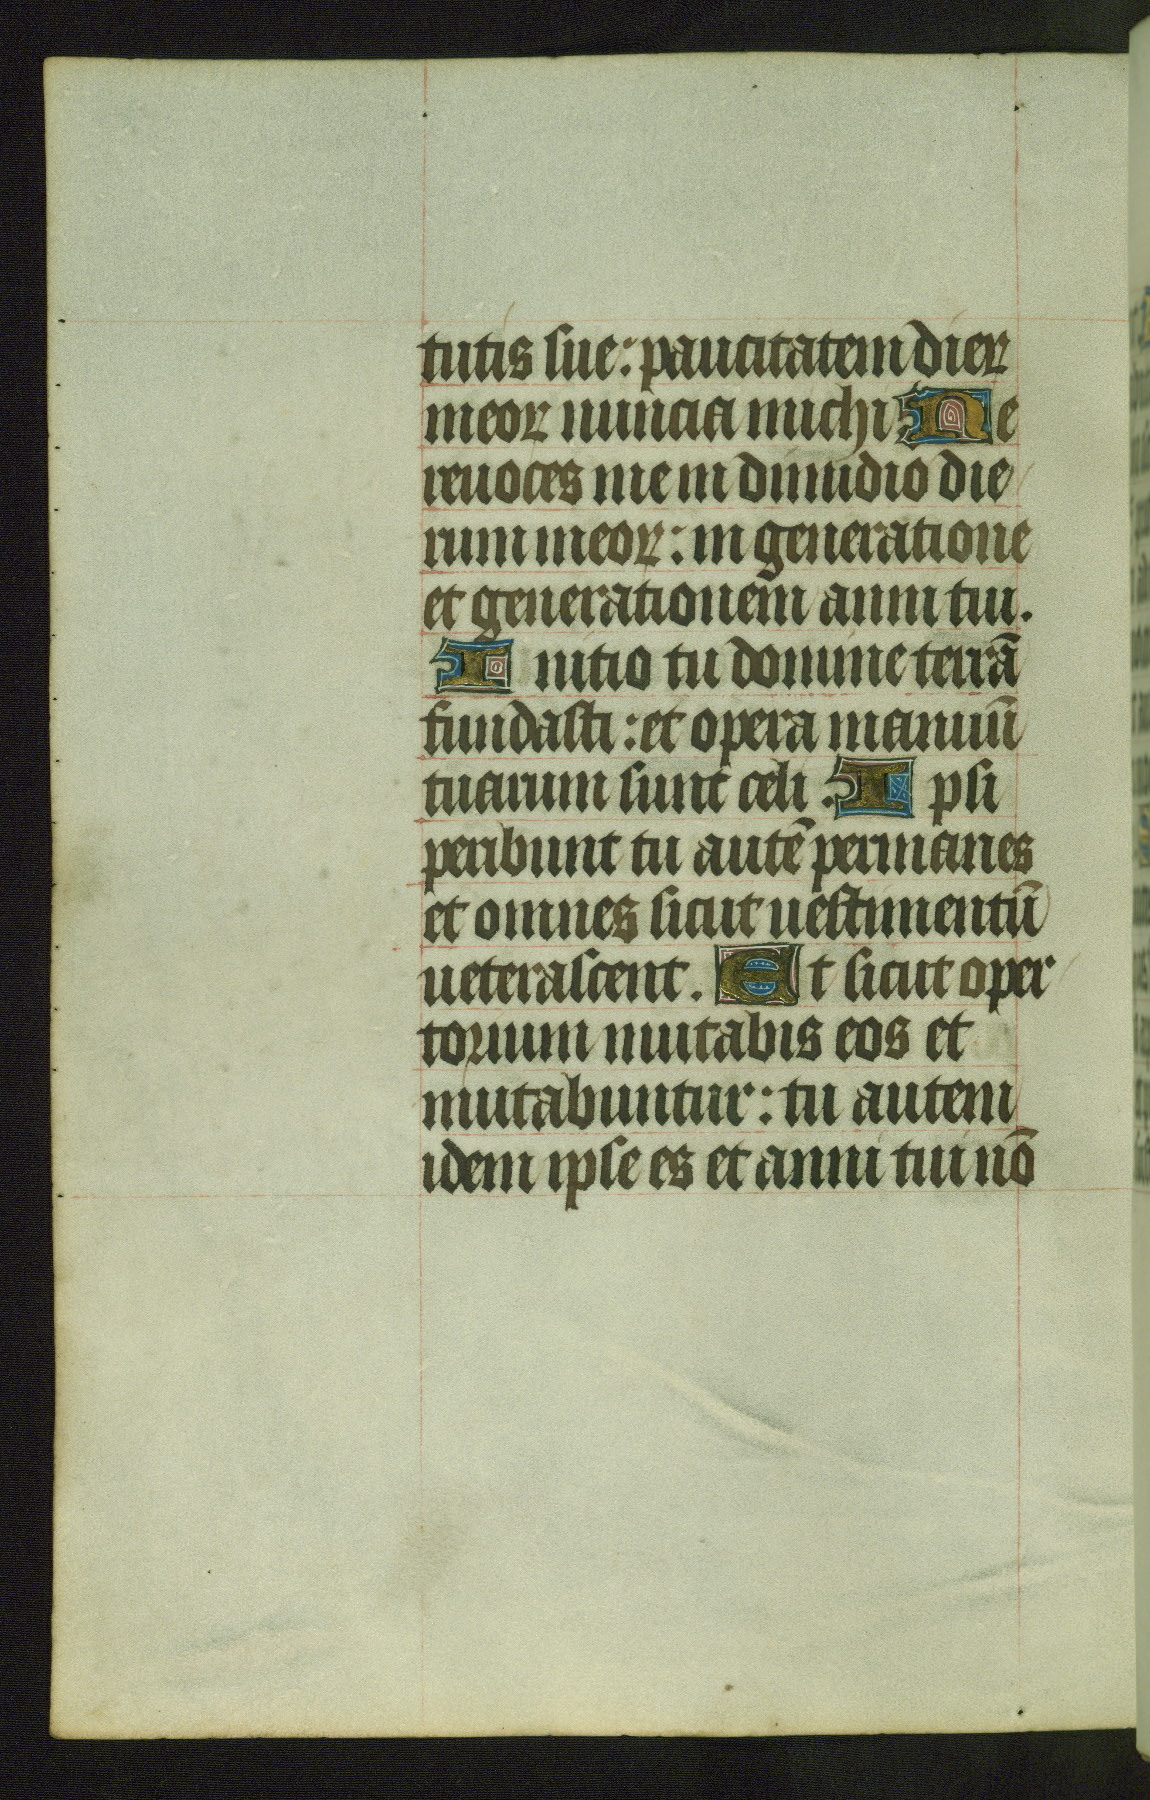 tutis sue: paucitatem dierꝝ
meorꝝ nuncia michi Ne
reuoces me in dimidio die
rum meorꝝ: in generatione
et generationem anni tui.
Initio tu domine terrā
fundasti: et opera manuū
tuarum sunt celi. Ipsi
peribunt tu autē permanes
et omnes sicut uestimentū
ueterascent. Et sicut oper
torium mutabis eos et
mutabuntur: tu autem
idem ipse es et anni tui nō